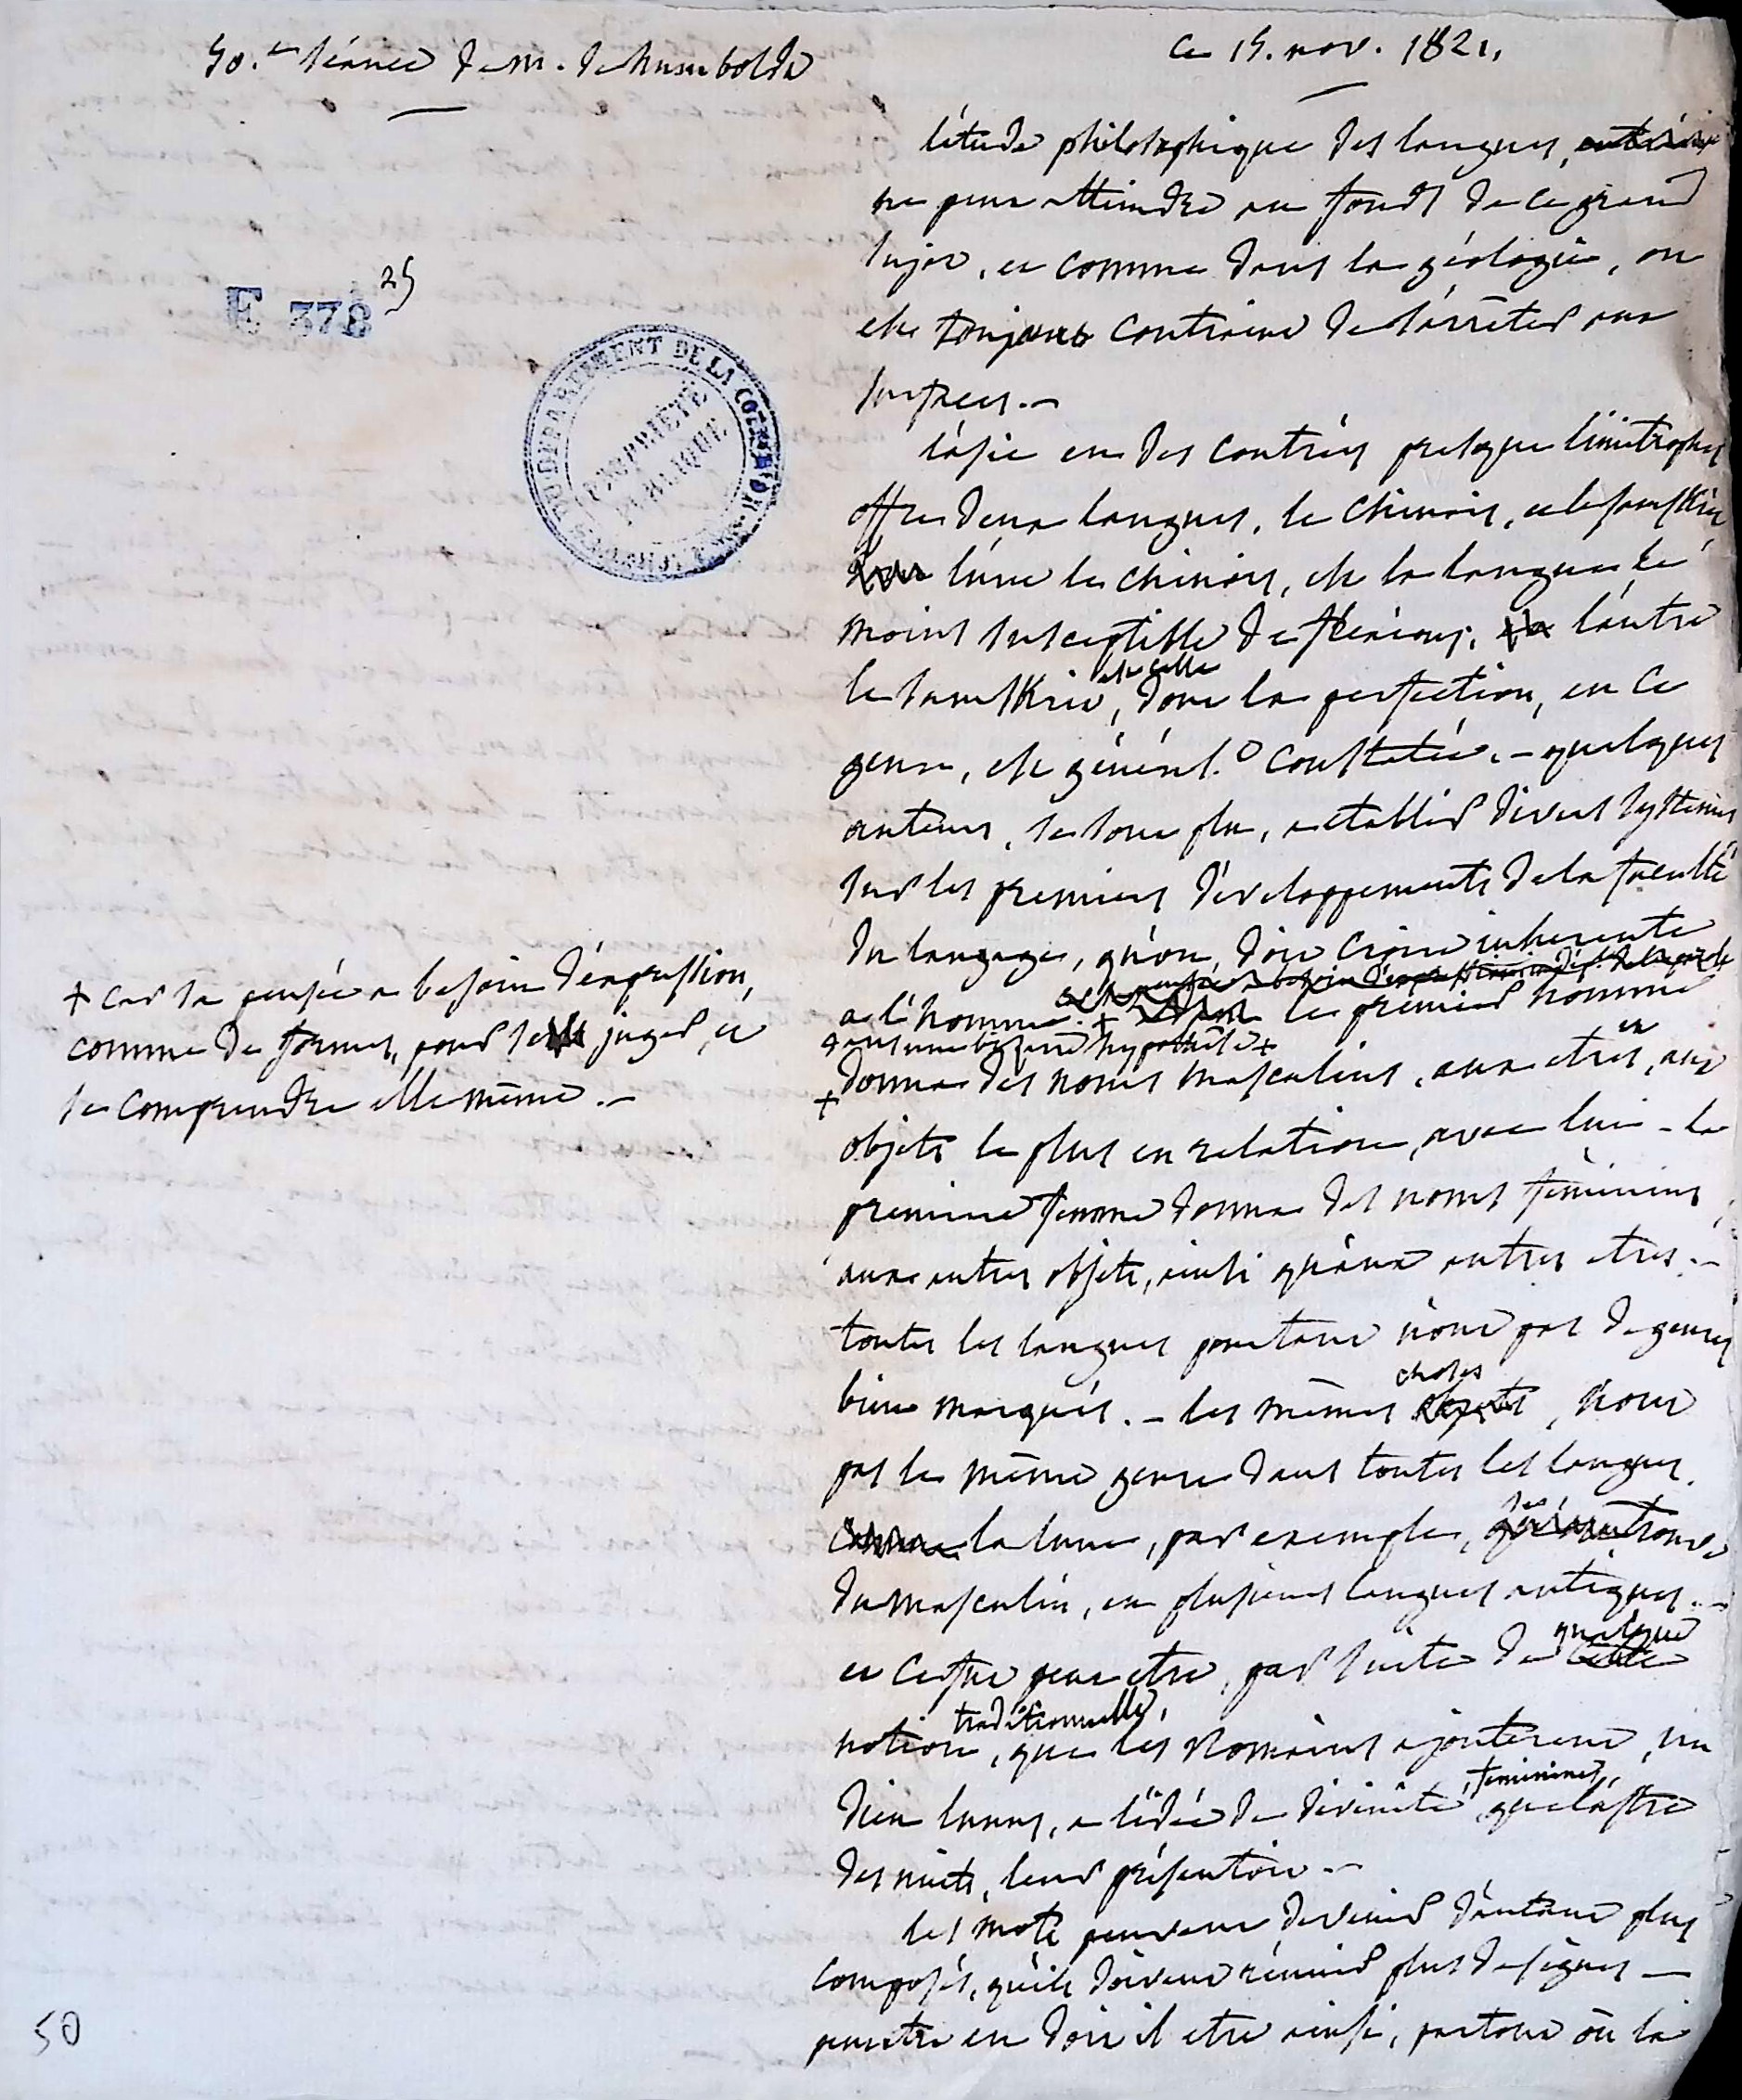 50.e séance de m. de humboldt
ce 15. nov. 1821.
E 378 25
DU DÉPARTEMENT DE LA CÔTE D'OR
PROPRIÉTÉ PUBLIQUE
l'étude philosophique des langues,
ne peut atteindre au fonds de ce grand
sujet, et comme dans la géologie, on
est toujours contraint de s'arrêter aux
surfaces. —
l'asie en des contrées presque limitrophes
offre deux langues, le chinois, et le sanskrit
l'une le chinois, est la langue la
moins susceptible de flexions; l'autre
le sanskrit, est celle dont la perfection, en ce
genre, est généralt constatée. — quelques
auteurs, se sont plu, a etablir divers systèmes
sur les premiers développements de la faculté
du langage, qu'on doit croire inherente
a l'homme. + le premier homme
+ car la pensée a besoin d'expression,
comme de formes, pour se juger, et
se comprendre elle même. —
dans une bizarre hypothèse +
+ donna des noms masculins, aux etres, et aux
objets le plus en relation, avec lui — la
premiere femme donna des noms féminins,
aux autres objets, ainsi qu'aux autres etres. —
toutes les langues pourtant n'ont pas de genres
bien marqués. — les mêmes choses, n'ont
pas le même genre dans toutes les langues.
la lune, par exemple, se trouve
du masculin, en plusieurs langues antiques. —
et ce fut peut etre, par suite de quelque
notion traditionnelle, que les Romains ajouterent, un
dieu lunus, a l'idée de divinité féminine, que l'astre
des nuits, leur présentoit. —
les mots peuvent devenir d'autant plus
composés, qu'ils doivent réunir plus de signes —
peutetre en doit il etre ainsi, partout où la
50